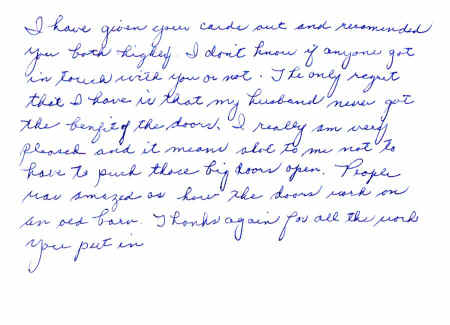 I have given your cards out and recomended
you both highly. I don't know if anyone got
in touch with you or not. The only regret
that I have is that my husband never got
the benfit of the doors. I really am very
pleased and it means alot to me not to
have to push those big doors open. People
was amazed as how the doors work on
an old barn. Thanks again for all the work
you put in